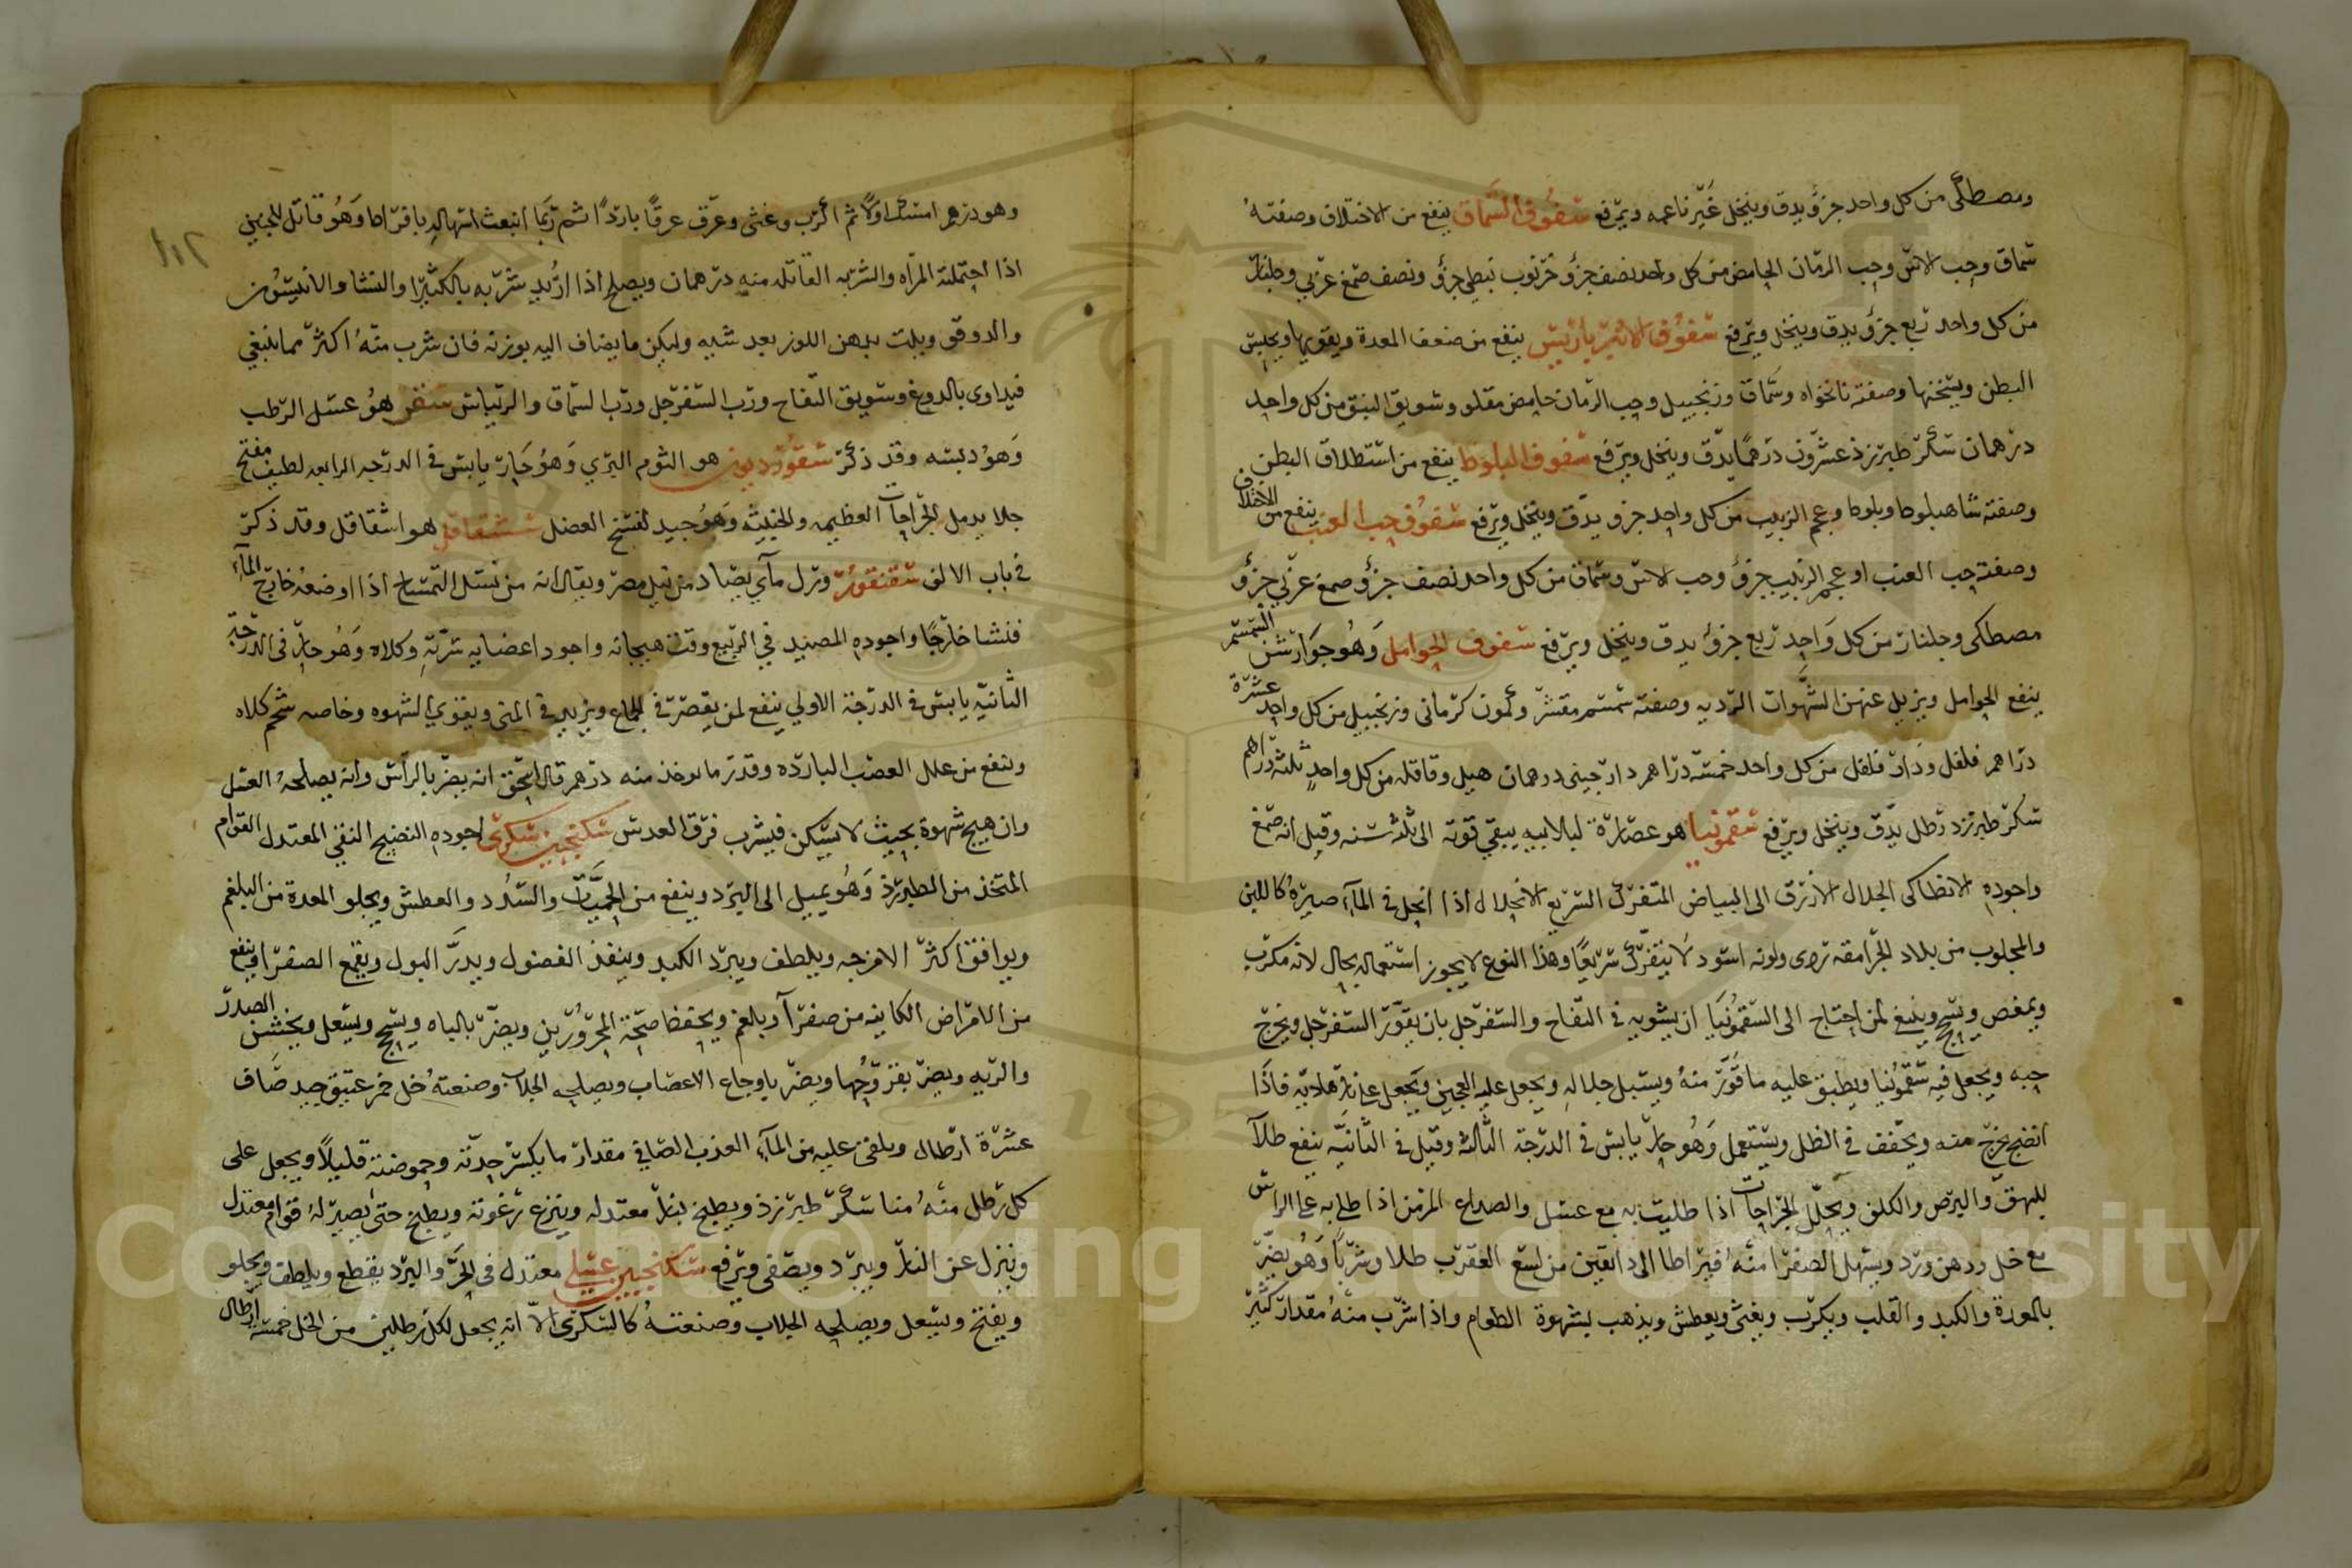 ومصطكى من كل واحد جزؤ يدق وينخل غير ناعمه ويرفع سفوف السماق ينفع من الاختلاف وصفته
سماق وحب الاس وحب الرمان الحامض من كل واحد نصف جزؤ خرنوب نبطي جزؤ ونصف صمغ عربي وجلنار
من كل واحد ربع جزؤ يدق وينخل ويرفع سفوف ينفع من ضعف المعدة ويقويها ويحبس
البطن ويسخنها وصفته نانخواه وسماق وزنجبيل وحب الرمان حامض مقلو وسويق النبق من كل واحد
درهمان سكر طبرزذ عشرون درهما يدق وينخل ويرفع سفوف البلوط ينفع من استطلاق البطن
وصفته شاهبلوط وبلوط وعجم الزبيب من كل واحد جزو يدق وينخل ويرفع سفوف حب العنب ينفع من الاختلاف
وصفته حب العنب او عجم الزبيب جزؤ وحب الاس وسماق من كل واحد نصف جزؤ صمغ عربي جزؤ
مصطكى وجلنار من كل واحد ربع جزؤ يدق وينخل ويرفع سفوف الحوامل وهو جوارشن السمسم
ينفع الحوامل ويزيل عنهن الشهوات الرديه وصفته سمسم مقشر وكمون كرمانى وزنجبيل من كل واحد عشرة
دراهم فلفل ودار فلفل من كل واحد خمسة دراهم دارجينى درهمان هيل وقاقله من كل واحد ثلثة دراهم
سكر طبرزد رطل يدق وينخل ويرفع سقمونيا هو عصارة لبلابيه يبقي قوته الى ثلث سنه وقيل انه صمغ
واجوده الانطاكى الجلال الازرق الى البياض المتفرك السريع الانحلال اذا انحل في المآء صيره كاللبن
والمجلوب من بلاد الجرامقه ردى ولونه اسود لا يتفرك سريعا وهذا النوع لا يجوز استعماله بحال لانه مكرب
ويمغص ويسحج وينبغ لمن احتاج الى السقمونيا ان يشويه في التفاح والسفرجل بان يقور السفرجل ويخرج
حبه ويجعل فيه سقمونيا ويطبق عليه ما قور منه ويجعل عليه العجين ويجعل على نار هاديه فاذا
انضج يخرج منه ويجفف في الظل ويستعمل وهو حار يابس في الدرجة الثالثه وقيل في الثانيه ينفع طلآ
للبهق والبرص والكلف ويحلل الخراجات اذا طليت به مع عسل والصداع المزمن اذا طلى به على الراس
مع خل ودهن ورد ويسهل الصفرا منه قيراطا الى دانقين من لسع العقرب طلا وشربا وهو يضر
بالمعدة والكبد والقلب ويكرب ويغثى ويعطش ويذهب بشهوة الطعام واذا شرب منه مقدار كثير
١١٢
وهو درهم امسك اولا ثم اكرب وغثى وعرق عرقا باردا ثم ربما انبعث اسهاله بافراط وهو قاتل للجنين
اذا احتملته المراه والشربه القاتله منه درهمان ويصلح اذا اريد شربه بالكثيرا والنشا والانيسون
والدوقو ويلت بدهن اللوز بعد شيه وليكن ما يضاف اليه بوزنه فان شرب منه اكثر مما ينبغي
فيداوى بالدوغ وسويق التفاح ورب السفرجل ورب السماق والريباس سقر هو عسل الرطب
وهو دبسه وقد ذكر سقورديون هو الثوم البري وهو حار يابس في الدرجه الرابعه لطيف مفتح
جلا يدمل الجراحات العظيمه والخبيثه وهو جيد لفسخ العضل ششقاقل هو اشقاقل وقد ذكر
في باب الالف سقنقور ورل مآي يصاد من نيل مصر ويقال انه من نسل التمساح اذا وضعه خارج المآء
فنشا خارجا واجوده المصيد في الربيع وقت هيجانه واجود اعضايه سرته وكلاه وهو حار فى الدرجة
الثانيه يابس في الدرجة الاولي ينفع لمن يقصر في الجماع ويزيد في المنى ويقوي الشهوه وخاصه شحم كلاه
وينفع من علل العصب البارده وقدر ما يوخذ منه درهم قال اسحق انه يضر بالراس وانه يصلحه العسل
وان هيج شهوة بحيث لا يسكن فيشرب مرق العدس سكنجبين سكرى اجوده النضيج النقي المعتدل القوام
المتخذ من الطبرزذ وهو يميل الى البرد وينفع من الحميات والسدد والعطش ويجلو المعدة من البلغم
ويوافق اكثر الامزجه ويلطف ويبرد الكبد وينفذ الفضول ويدر البول ويقمع الصفرا وينفع
من الامراض الكاينه من صفرآ وبلغم ويحفظ صحة المحرورين ويضر بالباه ويسحج ويسعل ويخشن الصدر
والريه ويضر بقروحها ويضر باوجاع الاعصاب ويصلحه الجلاب وصنعته خل خمر عتيق جيد صاف
عشرة ارطال ويلقى عليه من المآء العذب الصافي مقدار ما يكسر حدته وحموضته قليلا ويجعل على
كل رطل منه منا سكر طبرزذ ويطبخ بنار معتدله وينزع رغوته ويطبخ حتى يصير له قوام معتدل
وينزل عن النار ويبرد ويصفى ويرفع سكنجبين عسلى معتدل فى الحر والبرد يقطع ويلطف ويجلو
ويفتح ويسعل ويصلحه الجلاب وصنعته كالسكرى الا انه يجعل لكل رطلين من الخل خمسة ارطال
Copyright © King Saud University
1957